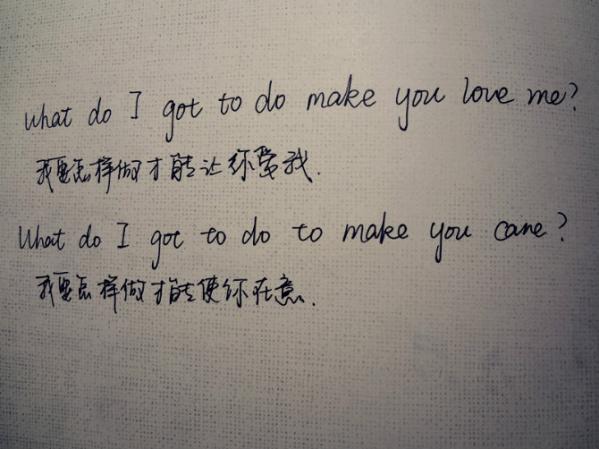 What do I got to do make you love me?
我要怎样做才能让你爱我.
What do I got to do to make you care?
我要怎样做才能使你在意.